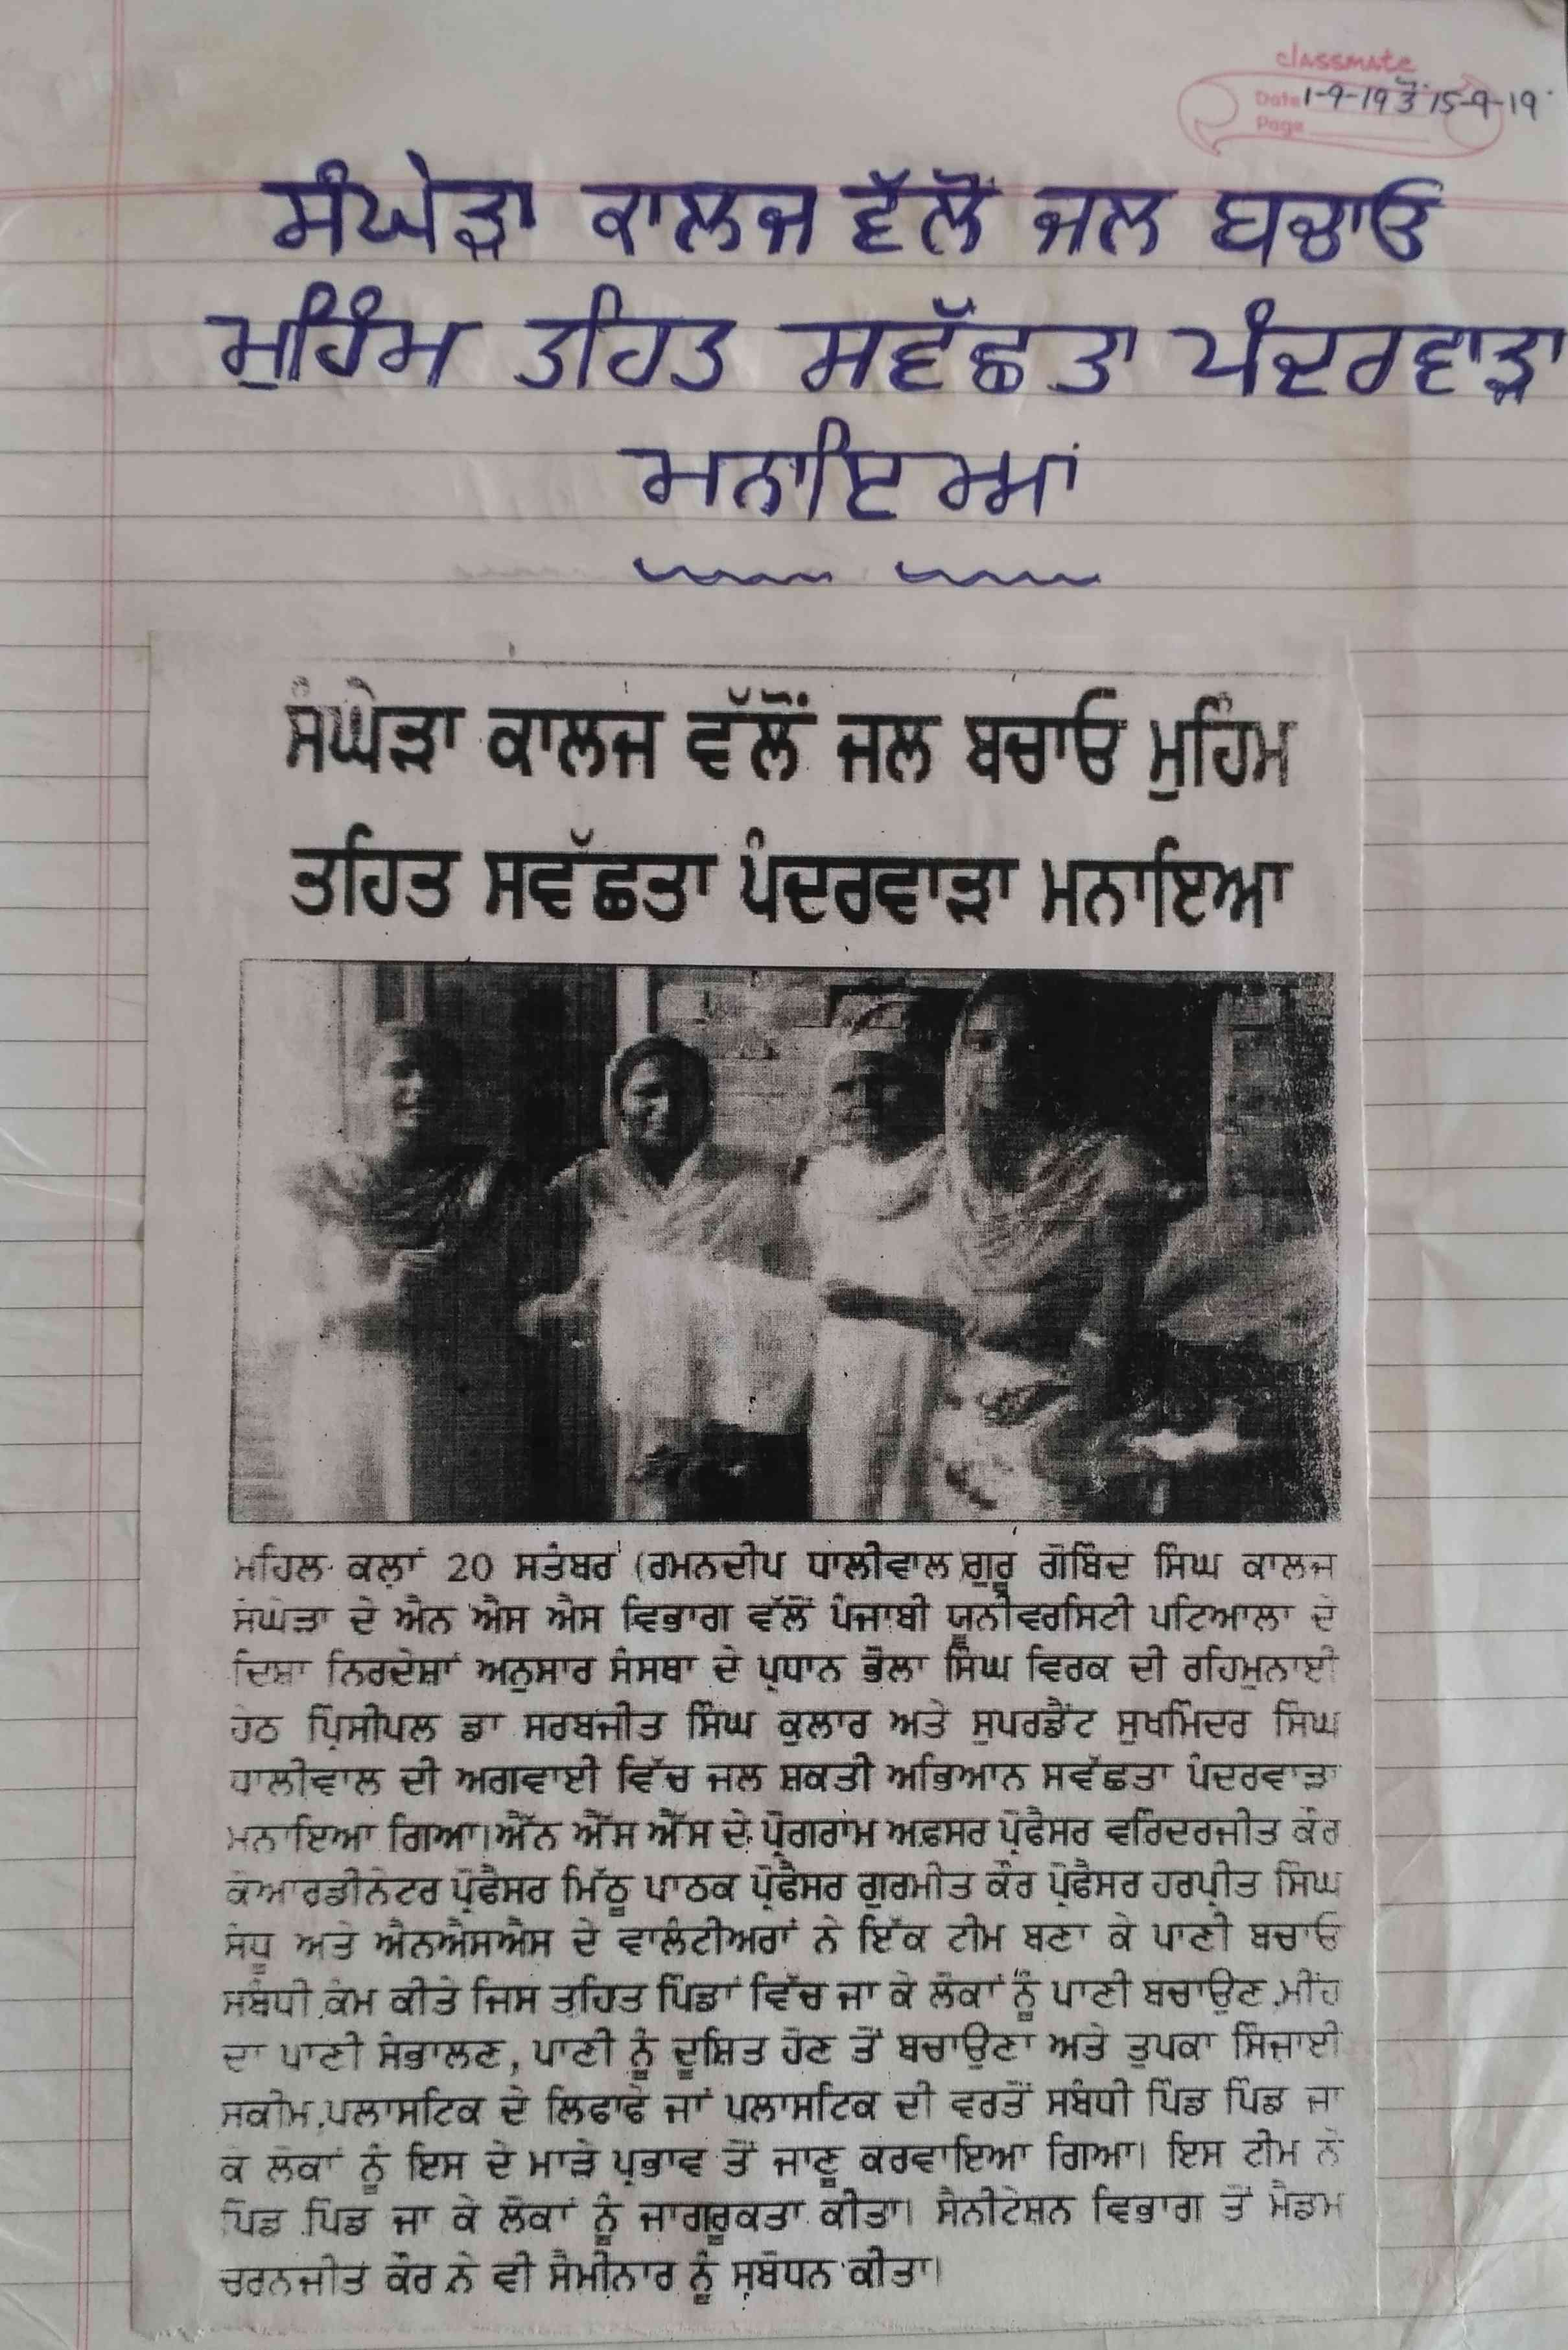 classmate
Date 1-9-19 ਤੋਂ 15-9-19
Page
ਸੰਘੇੜਾ ਕਾਲਜ ਵੱਲੋਂ ਜਲ ਬਚਾਓ
ਮੁਹਿੰਮ ਤਹਿਤ ਸਵੱਛਤਾ ਪੰਦਰਵਾੜਾ
ਮਨਾਇਆਂ
ਸੰਘੇੜਾ ਕਾਲਜ ਵੱਲੋਂ ਜਲ ਬਚਾਓ ਮੁਹਿੰਮ
ਤਹਿਤ ਸਵੱਛਤਾ ਪੰਦਰਵਾੜਾ ਮਨਾਇਆ
ਮਹਿਲ ਕਲਾਂ 20 ਸਤੰਬਰ (ਰਮਨਦੀਪ ਧਾਲੀਵਾਲ)ਗੁਰੂ ਗੋਬਿੰਦ ਸਿੰਘ ਕਾਲਜ
ਸੰਘੇੜਾ ਦੇ ਐਨ ਐਸ ਐਸ ਵਿਭਾਗ ਵੱਲੋਂ ਪੰਜਾਬੀ ਯੂਨੀਵਰਸਿਟੀ ਪਟਿਆਲਾ ਦੇ
ਦਿਸ਼ਾ ਨਿਰਦੇਸ਼ਾਂ ਅਨੁਸਾਰ ਸੰਸਥਾ ਦੇ ਪ੍ਰਧਾਨ ਭੋਲਾ ਸਿੰਘ ਵਿਰਕ ਦੀ ਰਹਿਮੁਨਾਈ
ਹੇਠ ਪ੍ਰਿੰਸੀਪਲ ਡਾ ਸਰਬਜੀਤ ਸਿੰਘ ਕੁਲਾਰ ਅਤੇ ਸੁਪਰਡੈਂਟ ਸੁਖਮਿੰਦਰ ਸਿੰਘ
ਧਾਲੀਵਾਲ ਦੀ ਅਗਵਾਈ ਵਿੱਚ ਜਲ ਸ਼ਕਤੀ ਅਭਿਆਨ ਸਵੱਛਤਾ ਪੰਦਰਵਾੜਾ
ਮਨਾਇਆ ਗਿਆ।ਐੱਨ ਐੱਸ ਐੱਸ ਦੇ ਪ੍ਰੋਗਰਾਮ ਅਫ਼ਸਰ ਪ੍ਰੋਫੈਸਰ ਵਰਿੰਦਰਜੀਤ ਕੌਰ
ਕੋਆਰਡੀਨੇਟਰ ਪ੍ਰੋਫੈਸਰ ਮਿੱਠੂ ਪਾਠਕ ਪ੍ਰੋਫੈਸਰ ਗੁਰਮੀਤ ਕੌਰ ਪ੍ਰੋਫੈਸਰ ਹਰਪ੍ਰੀਤ ਸਿੰਘ
ਸੰਧੂ ਅਤੇ ਐਨਐਸਐਸ ਦੇ ਵਾਲੰਟੀਅਰਾਂ ਨੇ ਇੱਕ ਟੀਮ ਬਣਾ ਕੇ ਪਾਣੀ ਬਚਾਓ
ਸਬੰਧੀ ਕੰਮ ਕੀਤੇ ਜਿਸ ਤਹਿਤ ਪਿੰਡਾਂ ਵਿੱਚ ਜਾ ਕੇ ਲੋਕਾਂ ਨੂੰ ਪਾਣੀ ਬਚਾਉਣ,ਮੀਂਹ
ਦਾ ਪਾਣੀ ਸੰਭਾਲਣ, ਪਾਣੀ ਨੂੰ ਦੂਸ਼ਿਤ ਹੋਣ ਤੋਂ ਬਚਾਉਣਾ ਅਤੇ ਤੁਪਕਾ ਸਿੰਜਾਈ
ਸਕੀਮ,ਪਲਾਸਟਿਕ ਦੇ ਲਿਫਾਫੇ ਜਾਂ ਪਲਾਸਟਿਕ ਦੀ ਵਰਤੋਂ ਸਬੰਧੀ ਪਿੰਡ ਪਿੰਡ ਜਾ
ਕੇ ਲੋਕਾਂ ਨੂੰ ਇਸ ਦੇ ਮਾੜੇ ਪ੍ਰਭਾਵ ਤੋਂ ਜਾਣੂ ਕਰਵਾਇਆ ਗਿਆ। ਇਸ ਟੀਮ ਨੇ
ਪਿੰਡ ਪਿੰਡ ਜਾ ਕੇ ਲੋਕਾਂ ਨੂੰ ਜਾਗਰੂਕਤਾ ਕੀਤਾ। ਸੈਨੀਟੇਸ਼ਨ ਵਿਭਾਗ ਤੋਂ ਮੈਡਮ
ਚਰਨਜੀਤ ਕੌਰ ਨੇ ਵੀ ਸੈਮੀਨਾਰ ਨੂੰ ਸੰਬੋਧਨ ਕੀਤਾ।